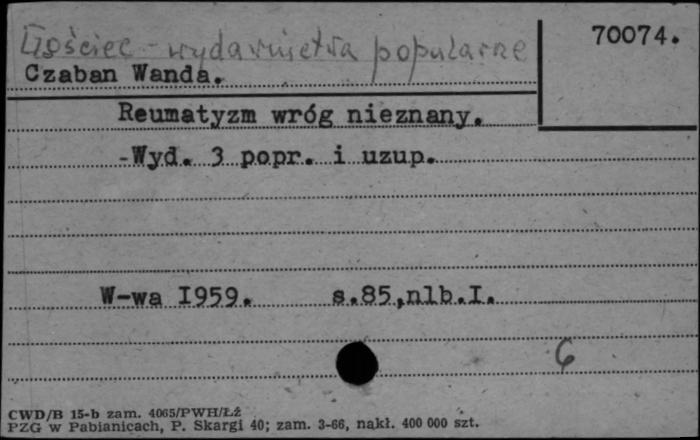 Gościec - wydawnictwa popularne
70074.
Czaban Wanda.
Reumatyzm wróg nieznany.
-Wyd. 3 popr. i uzup.
W-wa I959. s.85,nlb.I.
6
CWD/B 15-b zam. 4065/PWH/Łź
PZG w Pabianicach, P. Skargi 40; zam. 3-66, nakł. 400 000 szt.